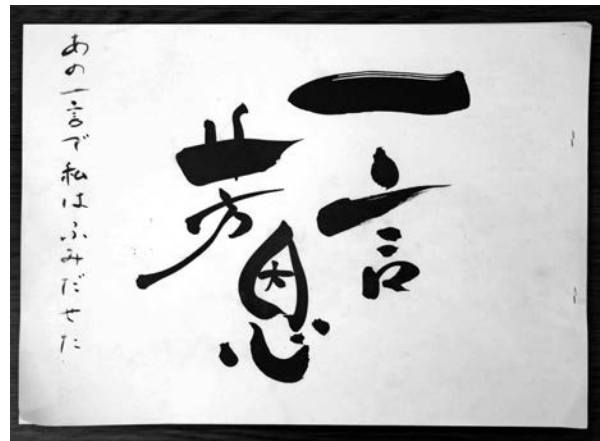 一言
芳恩
あの一言で私はふみだせた